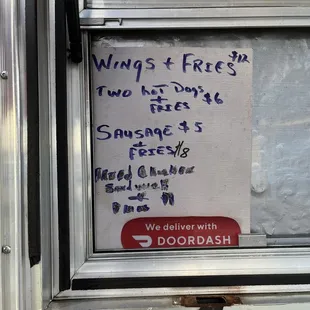 WINGS + FRIES $12
TWO HOT DOGS
+
FRIES $6
SAUSAGE $5
+
FRIES $8
FRIED CHICKEN
SANDWICH
We deliver with
DOORDASH